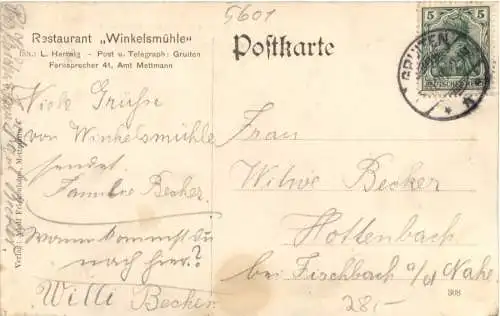 5601
Restaurant „Winkelsmühle“
Inh.: L. Hartwig - Post u. Telegraph: Gruiten
Fernsprecher 41, Amt Mettmann
Postkarte
5
GRUITEN
Viele Grüße
von Winkelsmühle
sendet
Familie Becker
wann kommst du
nach hier?
Willi Becker
Frau
Witwe Becker
Hottenbach
bei Fischbach a/d Nahe
308
28,-